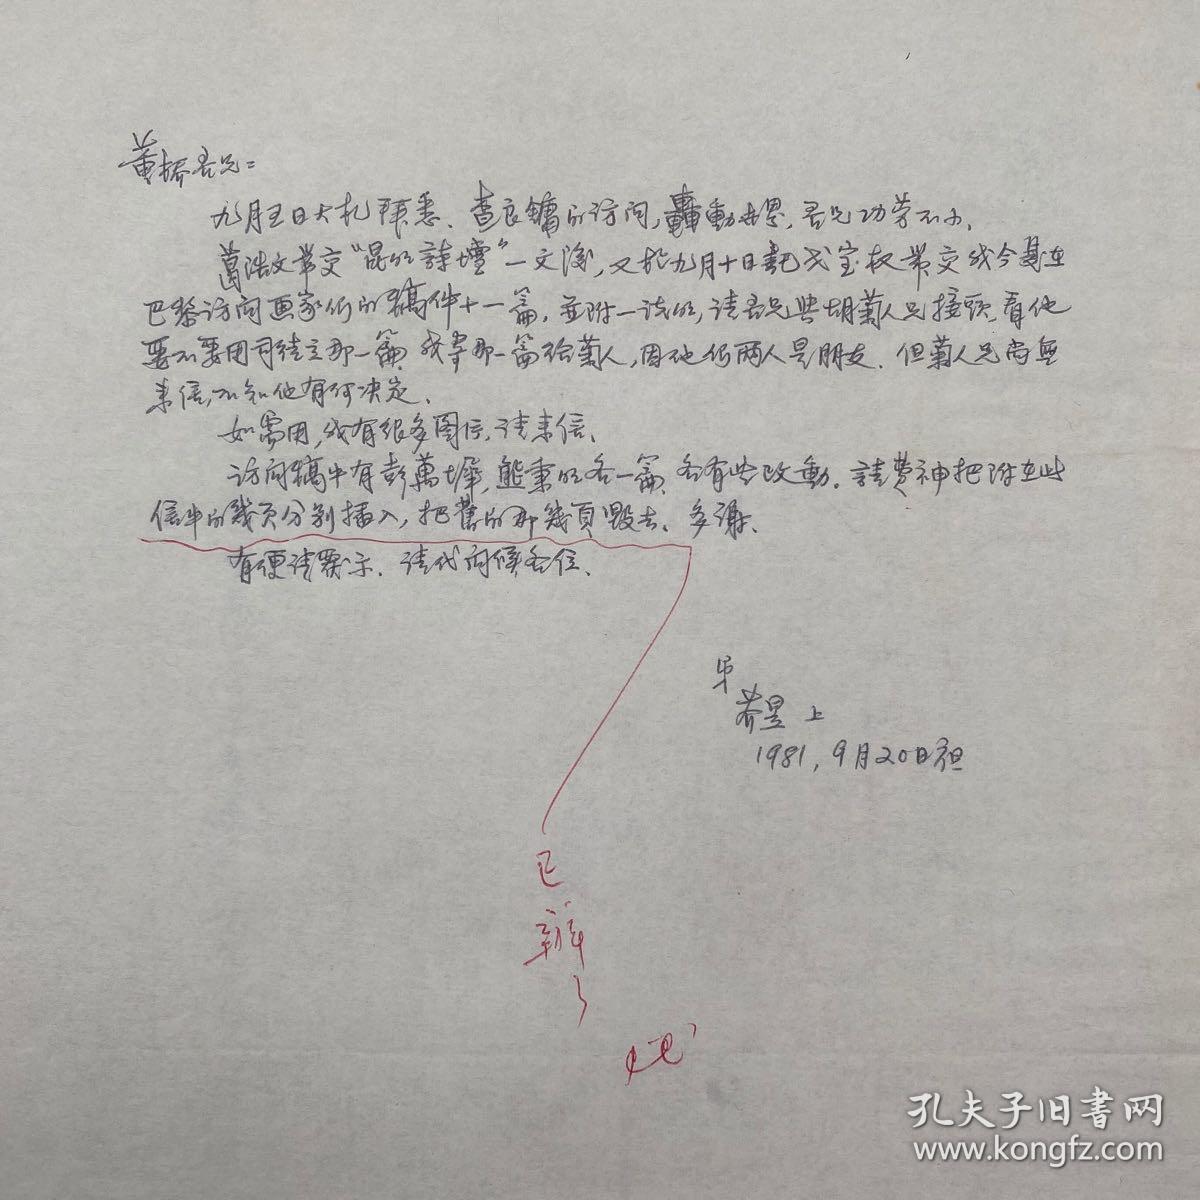 董橋吾兄：
九月五日大札拜悉．查良鏞的访问，轟動世界，吾兄功劳不小．
葛浩文带交“昆明諱壇”一文後，又於九月十日託戈宝权带交我今夏在
巴黎访问画家们的稿件十一篇，並附一说明，请吾兄與胡菊人兄接頭，看他
要不要用司徒立那一篇．我寄那一篇给菊人，因他们两人是朋友．但菊人兄尚無
来信，不知他有何决定．
如需用，我有很多图片，请来信．
访问稿中有彭萬墀，熊秉明各一篇，各有些改動．請費神把附在此
信中的幾页分别插入，把舊的那幾頁毁去．多謝．
有便请賜示．请代问候各位．
弟
莽昱 上
1981，9月20日
已
辦
了
孔夫子旧书网
www.kongfz.com